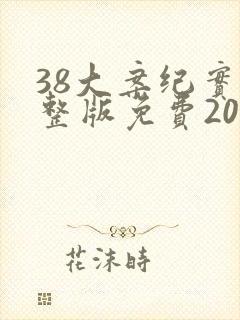 38大案纪實
整版免費20
花沫時